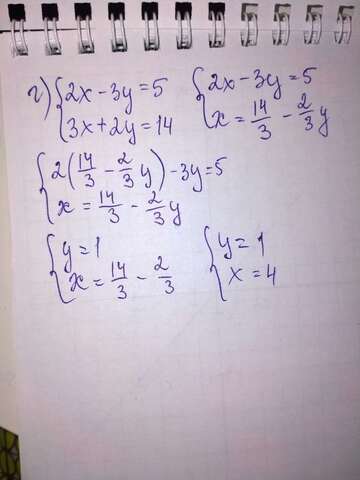 г) {2x - 3y = 5
3x + 2y = 14
{2x - 3y = 5
x = 14/3 - 2/3 y
{2(14/3 - 2/3 y) - 3y = 5
x = 14/3 - 2/3 y
{y = 1
x = 14/3 - 2/3
{y = 1
x = 4